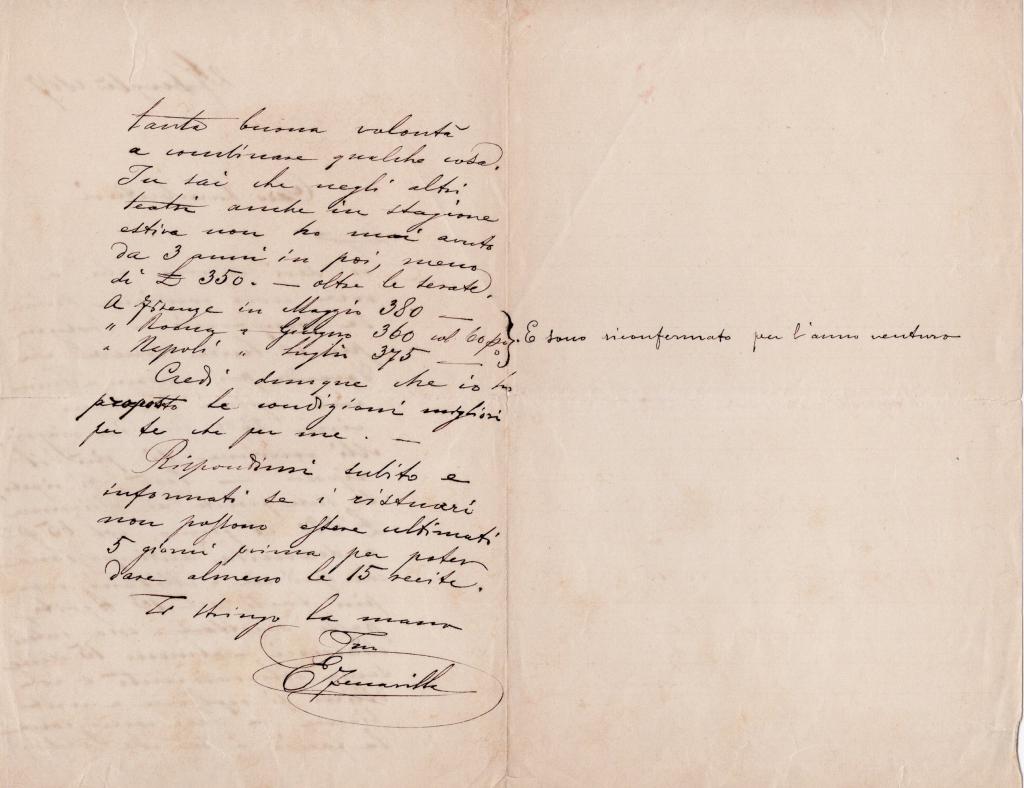 tanta buona volontà
a combinare qualche cosa.
Tu sai che negli altri
teatri anche in stagione
estiva non ho mai avuto
da 3 anni in poi, meno
di £ 350. — oltre le serate.
A Firenze in Maggio 380 —
" Roma " Giugno 360 col 60 p%
" Napoli " Luglio 375 —
} E sono riconfermato per l'anno venturo
Credi dunque che io ho
proposto le condizioni migliori
per te che per me. —
Rispondimi subito e
informati se i ristauri
non possono essere ultimati
5 giorni prima per poter
dare almeno le 15 recite.
Ti stringo la mano
Tuo